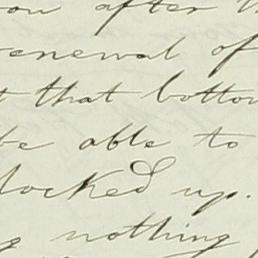 after
renewal of
that bottom
be able to
locked up.
nothing